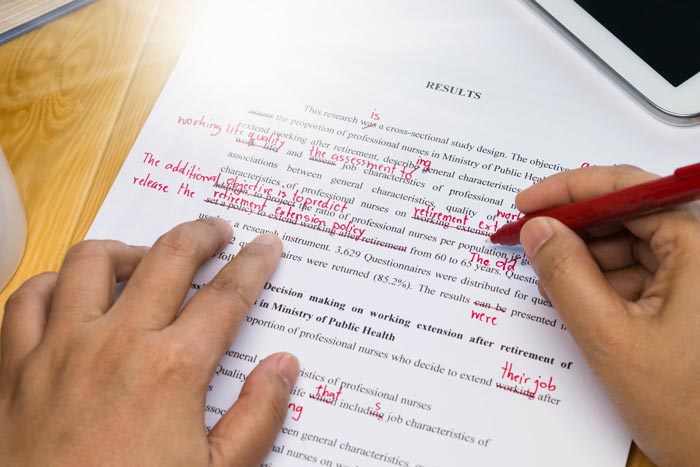 RESULTS
is
This research was a cross-sectional study design. The objective
the proportion of professional nurses in Ministry of Public Health
working life quality
extend working after retirement, describe general characteristics
ing
work life and assess job characteristics of professional
the assessment of
associations between general characteristics, quality
characteristics of professional nurses on working extension
retirement
The additional objective is to predict
to project the ratio of professional nurses per population
release the retirement extension policy
set a policy to extend working after retirement from 60 to 65 years.
The old
a research instrument. 3,629 Questionnaires were distributed for
questionnaires were returned (85.2%). The results can be presented
were
Decision making on working extension after retirement of
in Ministry of Public Health
proportion of professional nurses who decide to extend working after
their job
characteristics of professional nurses
life which including job characteristics of
that
s
ng
between general characteristics,
nurses on